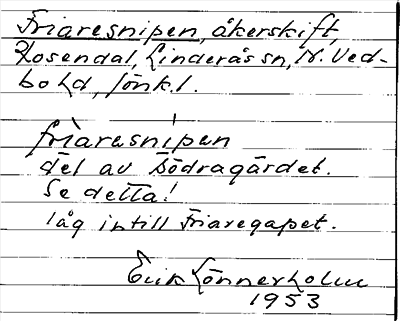 Friaresnipen, åkerskift,
Rosendal, Linderås sn, N. Ved-
bo hd, Jönk.l.
friaresnipen
del av Södragärdet.
Se detta!
låg intill Friaregapet.
Erik Lönnerholm
1953